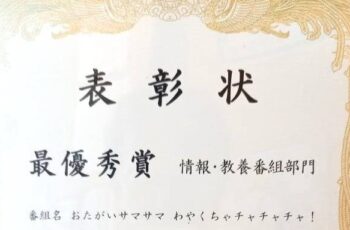 表彰状
最優秀賞 情報・教養番組部門
番組名 おたがいサマサマ わやくちゃチャチャチャ!